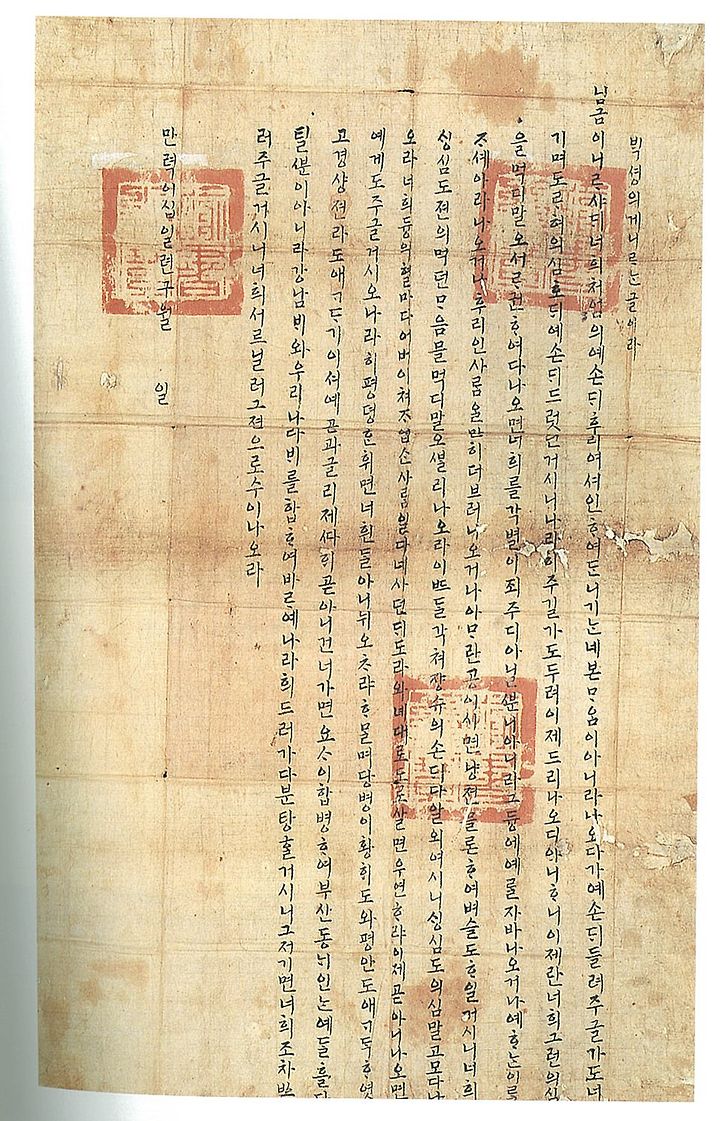 빅셩의게니ᄅᆞᄂᆞᆫ글이라
님금이니ᄅᆞ샤ᄃᆡ너희처엄의예손ᄃᆡ후리여셔인ᄒᆞ여ᄃᆞᆫ니기ᄂᆞᆫ네본ᄆᆞᄋᆞᆷ이아니라나오다가예손ᄃᆡ들려주글가도너
기며도ᄅᆞ혀의심ᄒᆞᄃᆡ예손ᄃᆡ드럿던거시니나라히주길가도두려이제드리나오디아니ᄒᆞ니이제란너희그런의심
을먹디말오서ᄅᆞ권ᄒᆞ여다나오면너희를각별이죄주디아닐ᄲᅮᆫ니아니라그듕에예ᄅᆞᆯ자바나오거나예ᄒᆞᄂᆞᆫ이ᄅᆞᆯ
ᄌᆞ셰아라나오거나후리인사ᄅᆞᆷ을만히더브러나오거나아ᄆᆞ란공이시면냥쳔믈론ᄒᆞ여벼슬도ᄒᆞ일거시니너희
ᄉᆡᆼ심도젼의먹던ᄆᆞᄋᆞᆷ믈먹디말오ᄲᆞᆯ리나오라이ᄠᅳ들각쳐쟝슈의손ᄃᆡ다알외여시니ᄉᆡᆼ심도의심말고모다나
오라너희듕의혈마다어버이쳐ᄌᆞ업ᄉᆞᆫ사ᄅᆞᆷ일다녜사던ᄃᆡ도라와녜대로도로살면우연ᄒᆞ랴이제곧아니나오면
예게도주글거시오나라히평뎡ᄒᆞᆫ휘면너흰들아니뉘오ᄎᆞ랴ᄒᆞ믈며당병이황ᄒᆡ도와평안도애ᄀᆞ득ᄒᆞ엿
고경샹젼라도애ᄀᆞᄃᆞ기이셔예곧과글리제ᄯᅡ히곧아니건너가면요ᄉᆞ이합병ᄒᆞ여부산동ᄂᆡ인ᄂᆞᆫ예ᄃᆞᆯ흘다
틸ᄲᅮᆫ이아니라강남ᄇᆡ와우리나라ᄇᆡ를합ᄒᆞ여바ᄅᆞ예나라희드러가다분탕ᄒᆞᆯ거시니그저기면너희조차ᄡᅳ
러주글거시니너희서ᄅᆞ닐러그젼으로수이나오라
만력이십일년구월 일